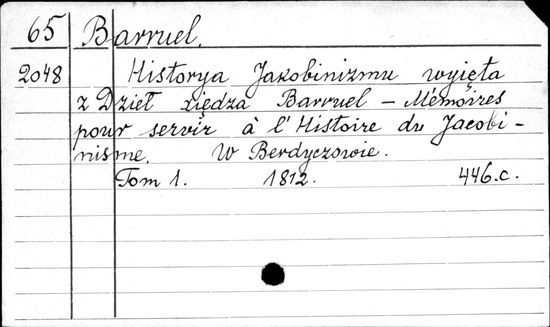 65 Barruel.
2048 Historya Jakobinizmu wyjęta
z Dzieł xiędza Barruel - Mémoires
pour servir à l'Histoire du Jacobi-
nisme. W Berdyczowie.
Tom 1. 1812. 446.c.